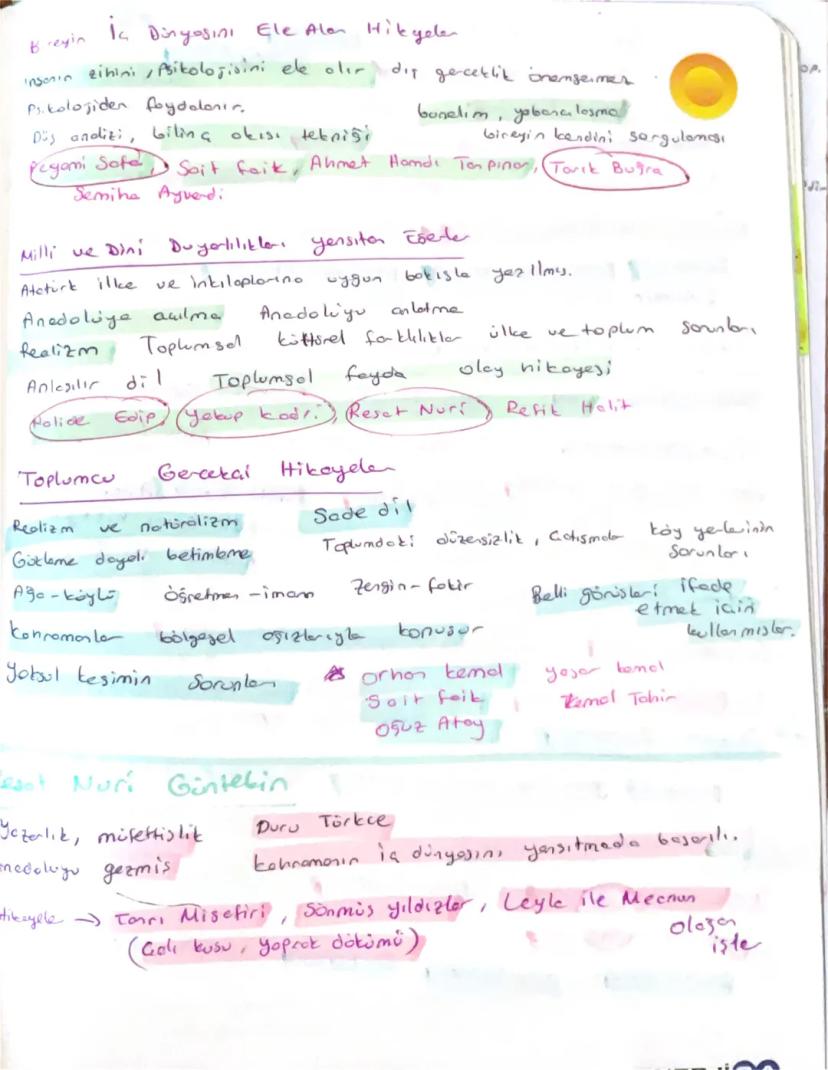 Bireyin İç Dünyasını Ele Alan Hikyeler
insanın zihini, psikolojisini ele alır dış gerçeklik önemsenmez
Psikolojiden faydalanır. bunalım, yabancılaşma
Düş analizi, bilinç akışı tekniği bireyin kendini sorgulaması
Peyami Safa, Sait Faik, Ahmet Hamdi Tanpınar, Tarık Buğra
Semiha Ayverdi
Milli ve Dini Duyarlılıkları yansıtan Eserler
Atatürk ilke ve inkılaplarına uygun bakışla yazılmış.
Anadoluya açılma Anadoluyu anlatma
Realizm Toplumsal kültürel farklılıklar ülke ve toplum sorunları
Anlaşılır dil Toplumsal fayda olay hikayesi
Halide Edip, Yakup Kadri, Reşat Nuri, Refik Halit
Toplumcu Gerçekçi Hikayeler
Realizm ve natüralizm Sade dil
Gözleme dayalı betimleme Toplumdaki düzensizlik, Çatışmalar köy yerlerinin sorunları
Ağa-köylü öğretmen-imam Zengin-fakir Belli görüşleri ifade etmek için kullanmışlar.
Kahramanlar bölgesel ağızlarıyla konuşur
Yoksul kesimin sorunları orhan kemal yaşar kemal
Sait faik Kemal Tahir
Oğuz Atay
eşat Nuri Güntekin
Yazarlık, müfettişlik Duru Türkçe
nadoluyu gezmiş kahramanın iç dünyasını yansıtmada başarılı.
Hikayele → Tanrı Misafiri, Sönmüş yıldızlar, Leyla ile Mecnun
(Çalı kuşu, yaprak dökümü) olağan işle